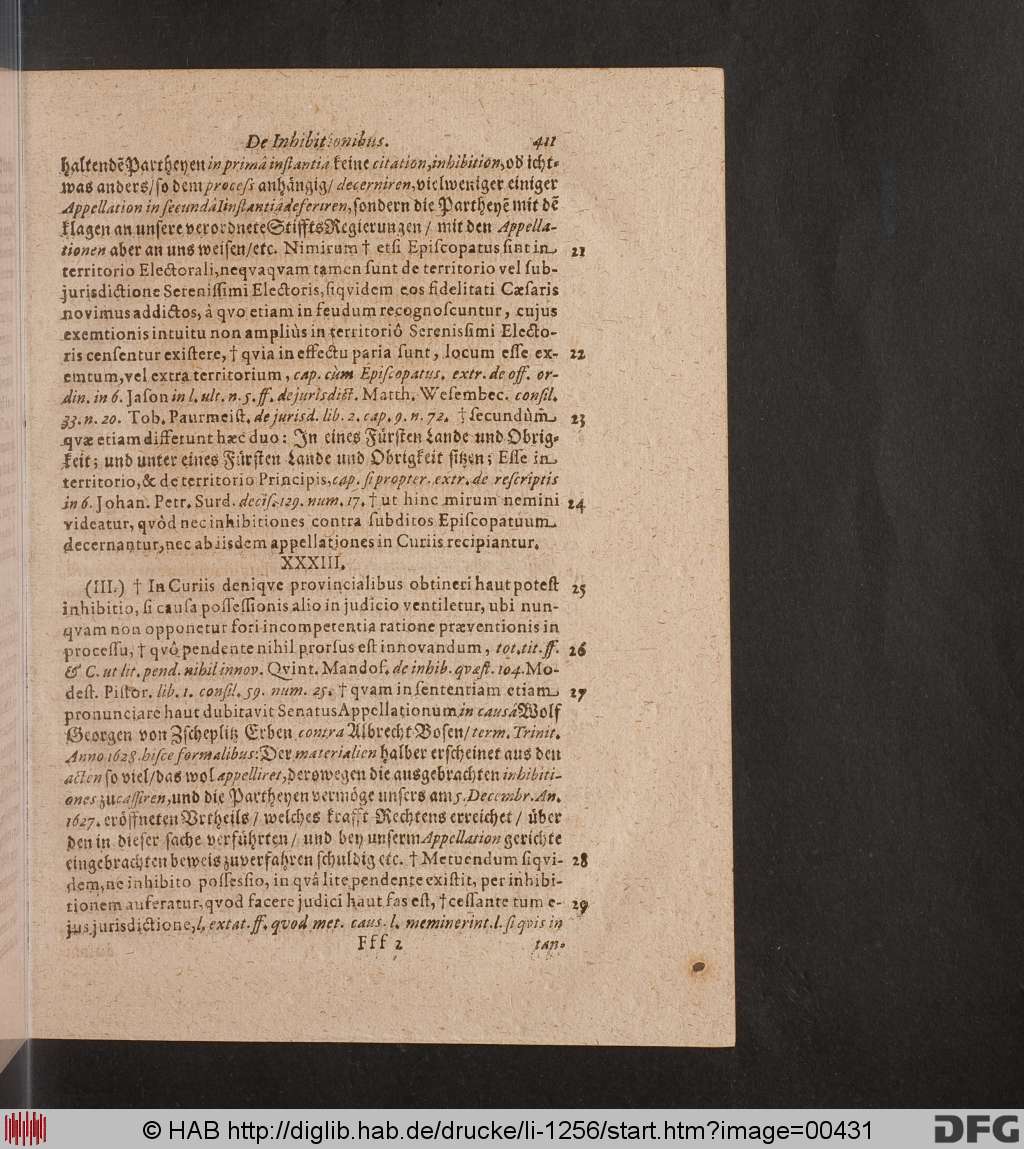 De Inhibitionibus. 411
haltendē Partheyen in primâ instantia keine citation, inhibition, oď icht-
was anders/ so dem process anhängig/ decerniren, vielweniger einiger
Appellation in secundâ Instantiâ deferiren, sondern die Partheyē mit dē
klagen an unsere verordnete StifftsRegierungen/ mit den Appella-
tionen aber an uns weisen/ etc. Nimirum † etsi Episcopatus sint in 21
territorio Electorali, neqvaqvam tamen sunt de territorio vel sub-
jurisdictione Serenissimi Electoris, siqvidem eos fidelitati Cæsaris
novimus addictos, à qvo etiam in feudum recognoscuntur, cujus
exemtionis intuitu non ampliùs in territoriô Serenissimi Electo-
ris censentur existere, † qvia in effectu paria sunt, locum esse ex- 22
emtum, vel extra territorium, cap. cùm Episcopatus. extr. de off. or-
din. in 6. Jason in l. ult. n. 5. ff. de jurisdict. Matth. Wesembec. consil.
33. n. 20. Tob. Paurmeist. de jurisd. lib. 2. cap. 9. n. 72. † secundùm̃ 23
qvæ etiam differunt hæc duo: In eines Fürsten Lande und Obrig-
keit; und unter eines Fürsten Lande und Obrigkeit sitzen; Esse in
territorio, & de territorio Principis, cap. si propter. extr. de rescriptis
in 6. Johan. Petr. Surd. decis. 129. num. 17. † ut hinc mirum nemini 24
videatur, qvòd nec inhibitiones contra subditos Episcopatuum
decernantur, nec ab iisdem appellationes in Curiis recipiantur.
XXXIII.
(III.) † In Curiis deniqve provincialibus obtineri haut potest 25
inhibitio, si causa possessionis alio in judicio ventiletur, ubi nun-
qvam non opponetur fori incompetentia ratione præventionis in
processu, † qvô pendente nihil prorsus est innovandum, tot. tit. ff. 26
& C. ut lit. pend. nihil innov. Qvint. Mandos. de inhib. qvæst. 104. Mo-
dest. Pistor. lib. 1. consil. 59. num. 25. † qvam in sententiam etiam 27
pronunciare haut dubitavit Senatus Appellationum in causâ Wolf
Georgen von Zscheplitz Erben contra Albrecht Bosen/ term. Trinit.
Anno 1628. hisce formalibus: Der materialien halber erscheinet aus den
acten so viel/ das wol appelliret, derowegen die ausgebrachten inhibiti-
ones zu cassiren, und die Partheyen vermöge unsers am 5. Decembr. An.
1627. eröffneten Vrtheils/ welches krafft Rechtens erreichet/ über
den in dieser sache verführten/ und bey unserm Appellation gerichte
eingebrachten beweis zuverfahren schuldig etc. † Metuendum siqvi- 28
dem, ne inhibito possessio, in qvâ lite pendente existit, per inhibi-
tionem auferatur, qvod facere judici haut fas est, † cessante tum e- 29
jus jurisdictione, l. extat. ff. qvod met. caus. l. meminerint. l. si qvis in
Fff 2 tan-
© HAB http://diglib.hab.de/drucke/li-1256/start.htm?image=00431
DFG